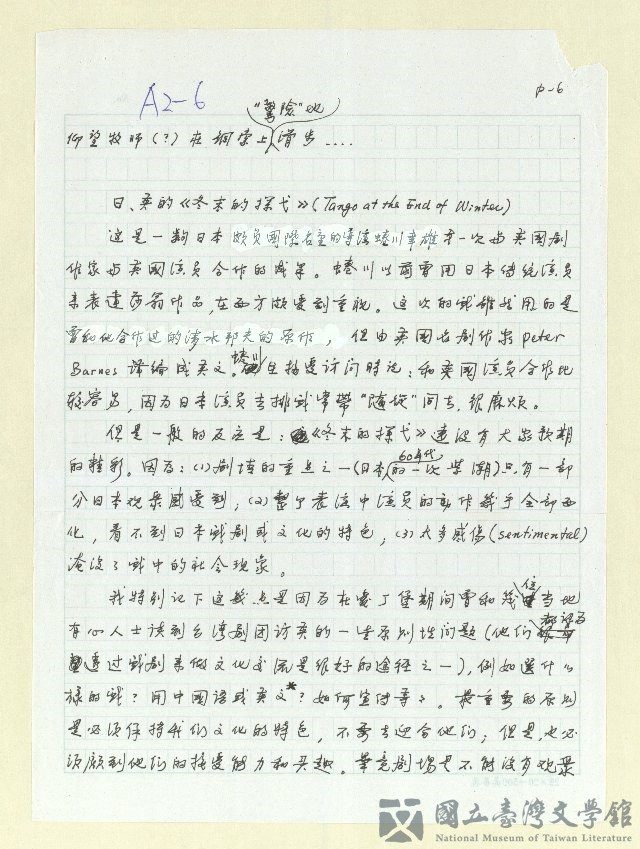 A2-6
中-6
"驚險"地
仰望牧師(?)在鋼索上滑步....
日、英的《冬末的探戈》(Tango at the End of Winter)
這是一齣日本頗負國際名望的導演蜷川幸雄第一次與英國劇
作家與英國演員合作的成果。蜷川以前曾用日本傳統演員
來表達莎翁作品,在西方頗受到重視。這次的戲雖然用的是
曾和他合作过的清水邦夫的原作,但由英國名劇作家Peter
Barnes譯編成英文。蜷川在接受訪问時說:和英國演員合作比
較容易,因为日本演員去排戲常帶"隨從"同去,很麻烦。
但是一般的反应是:《冬末的探戈》遠没有大家預期
的精彩。因為:(1)劇情的重点之一(日本60年代的一次学潮)只有一部
分日本观眾感受到,(2)整個表演中演員的動作幾乎全部西
化,看不到日本戲劇或文化的特色,(3)太多感傷(sentimental)
淹没了戲中的社会現象。
我特別記下這幾点是因为在愛丁堡期间曾和幾位当地
有心人士談到台湾劇团訪英的一些原則性问題(他们都認为
透过戲劇来做文化交流是很好的途径之一),例如選什么
樣的戲?用中國語或英文*?如何宣传等等。最重要的原則
是必須保持我们文化的特色,不要去迎合他们;但是,也必
須顾到他们的接受能力和兴趣。畢竟劇場是不能没有观眾
國立臺灣文學館
National Museum of Taiwan Literature